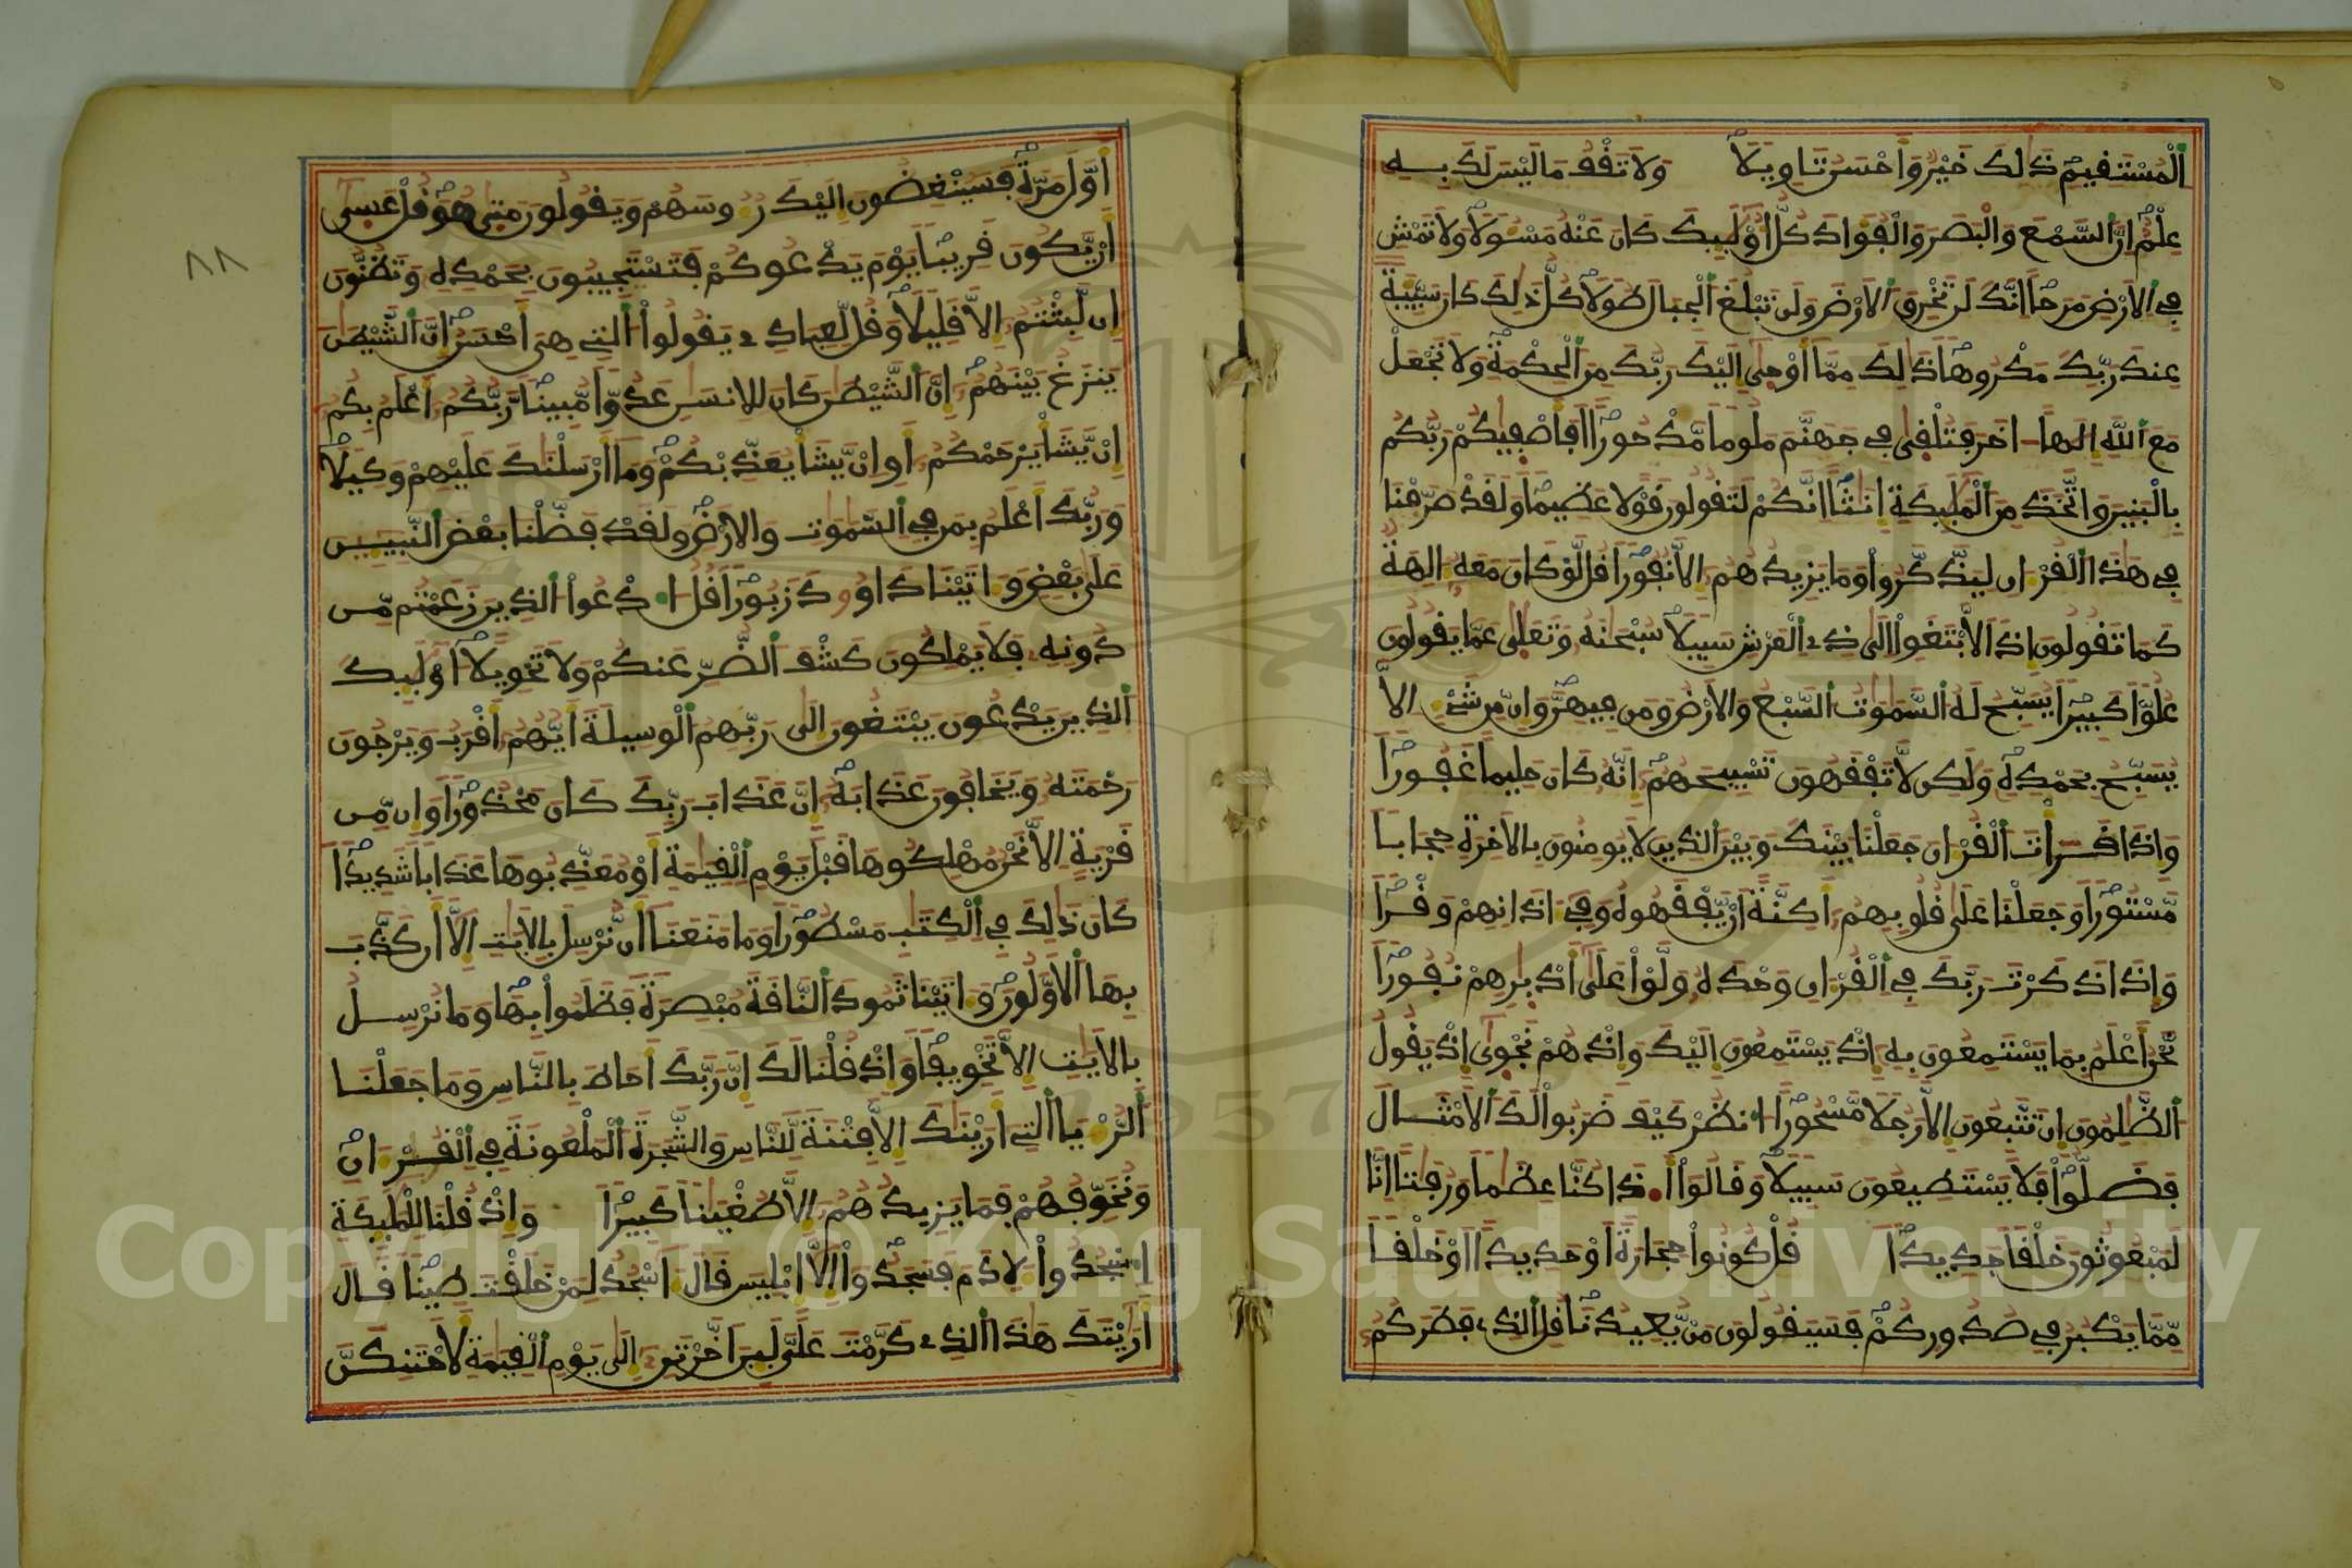 الْمُسْتَفِيمِ ذَٰلِكَ خَيْرٌ وَأَحْسَنُ تَاوِيلًا وَلَا تَفْفُ مَا لَيْسَ لَكَ بِهِ
عِلْمٌ إِنَّ السَّمْعَ وَالْبَصَرَ وَالْفُؤَادَ كُلُّ أُوْلَٰئِكَ كَانَ عَنْهُ مَسْـُٔولًا وَلَا تَمْشِ
فِي الْأَرْضِ مَرَحًا إِنَّكَ لَن تَخْرِقَ الْأَرْضَ وَلَن تَبْلُغَ الْجِبَالَ طُولًا كُلُّ ذَٰلِكَ كَانَ سَيِّئَةً
عِندَ رَبِّكَ مَكْرُوهًا ذَٰلِكَ مِمَّا أَوْحَىٰ إِلَيْكَ رَبُّكَ مِنَ الْحِكْمَةِ وَلَا تَجْعَلْ
مَعَ اللَّهِ إِلَٰهًا اخَرَ فَتُلْقَىٰ فِي جَهَنَّمَ مَلُومًا مَّدْحُورًا أَفَأَصْفَيٰكُمْ رَبُّكُم
بِالْبَنِينَ وَاتَّخَذَ مِنَ الْمَلَٰئِكَةِ إِنَٰثًا إِنَّكُمْ لَتَقُولُونَ قَوْلًا عَظِيمًا وَلَقَدْ صَرَّفْنَا
فِي هَٰذَا الْقُرْءَانِ لِيَذَّكَّرُوا وَمَا يَزِيدُهُمْ إِلَّا نُفُورًا قُل لَّوْ كَانَ مَعَهُ ءَالِهَةٌ
كَمَا تَقُولُونَ إِذًا لَّابْتَغَوْا إِلَىٰ ذِي الْعَرْشِ سَبِيلًا سُبْحَٰنَهُ وَتَعَٰلَىٰ عَمَّا يَقُولُونَ
عُلُوًّا كَبِيرًا يُسَبِّحُ لَهُ السَّمَٰوَٰتُ السَّبْعُ وَالْأَرْضُ وَمَن فِيهِنَّ وَإِن مِّن شَيْءٍ إِلَّا
يُسَبِّحُ بِحَمْدِهِ وَلَٰكِن لَّا تَفْقَهُونَ تَسْبِيحَهُمْ إِنَّهُ كَانَ حَلِيمًا غَفُورًا
وَإِذَا قَرَأْتَ الْقُرْءَانَ جَعَلْنَا بَيْنَكَ وَبَيْنَ الَّذِينَ لَا يُومِنُونَ بِالْأَخِرَةِ حِجَابًا
مَّسْتُورًا وَجَعَلْنَا عَلَىٰ قُلُوبِهِمْ أَكِنَّةً أَنْ يَّفْقَهُوهُ وَفِي ءَاذَانِهِمْ وَقْرًا
وَإِذَا ذَكَرْتَ رَبَّكَ فِي الْقُرْءَانِ وَحْدَهُ وَلَّوْا عَلَىٰ أَدْبَٰرِهِمْ نُفُورًا
نَّحْنُ أَعْلَمُ بِمَا يَسْتَمِعُونَ بِهِ إِذْ يَسْتَمِعُونَ إِلَيْكَ وَإِذْ هُمْ نَجْوَىٰ إِذْ يَقُولُ
الظَّٰلِمُونَ إِن تَتَّبِعُونَ إِلَّا رَجُلًا مَّسْحُورًا انظُرْ كَيْفَ ضَرَبُوا لَكَ الْأَمْثَالَ
فَضَلُّوا فَلَا يَسْتَطِيعُونَ سَبِيلًا وَقَالُوا أَءِذَا كُنَّا عِظَٰمًا وَرُفَٰتًا إِنَّا
لَمَبْعُوثُونَ خَلْقًا جَدِيدًا قُلْ كُونُوا حِجَارَةً أَوْ حَدِيدًا أَوْ خَلْقًا
مِّمَّا يَكْبُرُ فِي صُدُورِكُمْ فَسَيَقُولُونَ مَنْ يُّعِيدُنَا قُلِ الَّذِي فَطَرَكُمْ
أَوَّلَ مَرَّةٍ فَسَيُنْغِضُونَ إِلَيْكَ رُءُوسَهُمْ وَيَقُولُونَ مَتَىٰ هُوَ قُلْ عَسَىٰ
أَنْ يَّكُونَ قَرِيبًا يَوْمَ يَدْعُوكُمْ فَتَسْتَجِيبُونَ بِحَمْدِهِ وَتَظُنُّونَ
إِن لَّبِثْتُمْ إِلَّا قَلِيلًا وَقُل لِّعِبَادِي يَقُولُوا الَّتِي هِيَ أَحْسَنُ إِنَّ الشَّيْطَٰنَ
يَنزَغُ بَيْنَهُمْ إِنَّ الشَّيْطَٰنَ كَانَ لِلْإِنسَٰنِ عَدُوًّا مُّبِينًا رَّبُّكُمْ أَعْلَمُ بِكُمْ
إِنْ يَّشَأْ يَرْحَمْكُمْ أَوْ إِنْ يَّشَأْ يُعَذِّبْكُمْ وَمَا أَرْسَلْنَٰكَ عَلَيْهِمْ وَكِيلًا
وَرَبُّكَ أَعْلَمُ بِمَن فِي السَّمَٰوَٰتِ وَالْأَرْضِ وَلَقَدْ فَضَّلْنَا بَعْضَ النَّبِيِّينَ
عَلَىٰ بَعْضٍ وَءَاتَيْنَا دَاوُودَ زَبُورًا قُلُ ادْعُوا الَّذِينَ زَعَمْتُم مِّن
دُونِهِ فَلَا يَمْلِكُونَ كَشْفَ الضُّرِّ عَنكُمْ وَلَا تَحْوِيلًا أُوْلَٰئِكَ
الَّذِينَ يَدْعُونَ يَبْتَغُونَ إِلَىٰ رَبِّهِمُ الْوَسِيلَةَ أَيُّهُمْ أَقْرَبُ وَيَرْجُونَ
رَحْمَتَهُ وَيَخَافُونَ عَذَابَهُ إِنَّ عَذَابَ رَبِّكَ كَانَ مَحْذُورًا وَإِن مِّن
قَرْيَةٍ إِلَّا نَحْنُ مُهْلِكُوهَا قَبْلَ يَوْمِ الْقِيَٰمَةِ أَوْ مُعَذِّبُوهَا عَذَابًا شَدِيدًا
كَانَ ذَٰلِكَ فِي الْكِتَٰبِ مَسْطُورًا وَمَا مَنَعَنَا أَن نُّرْسِلَ بِالْأَيَٰتِ إِلَّا أَن كَذَّبَ
بِهَا الْأَوَّلُونَ وَءَاتَيْنَا ثَمُودَ النَّاقَةَ مُبْصِرَةً فَظَلَمُوا بِهَا وَمَا نُرْسِلُ
بِالْأَيَٰتِ إِلَّا تَخْوِيفًا وَإِذْ قُلْنَا لَكَ إِنَّ رَبَّكَ أَحَاطَ بِالنَّاسِ وَمَا جَعَلْنَا
الرُّءْيَا الَّتِي أَرَيْنَٰكَ إِلَّا فِتْنَةً لِّلنَّاسِ وَالشَّجَرَةَ الْمَلْعُونَةَ فِي الْقُرْءَانِ
وَنُخَوِّفُهُمْ فَمَا يَزِيدُهُمْ إِلَّا طُغْيَٰنًا كَبِيرًا وَإِذْ قُلْنَا لِلْمَلَٰئِكَةِ
اسْجُدُوا لِأَدَمَ فَسَجَدُوا إِلَّا إِبْلِيسَ قَالَ ءَاسْجُدُ لِمَنْ خَلَقْتَ طِينًا قَالَ
أَرَيْتَكَ هَٰذَا الَّذِي كَرَّمْتَ عَلَيَّ لَئِنْ أَخَّرْتَنِ إِلَىٰ يَوْمِ الْقِيَٰمَةِ لَأَحْتَنِكَنَّ
٨٨
Copyright © King Saud University
1957